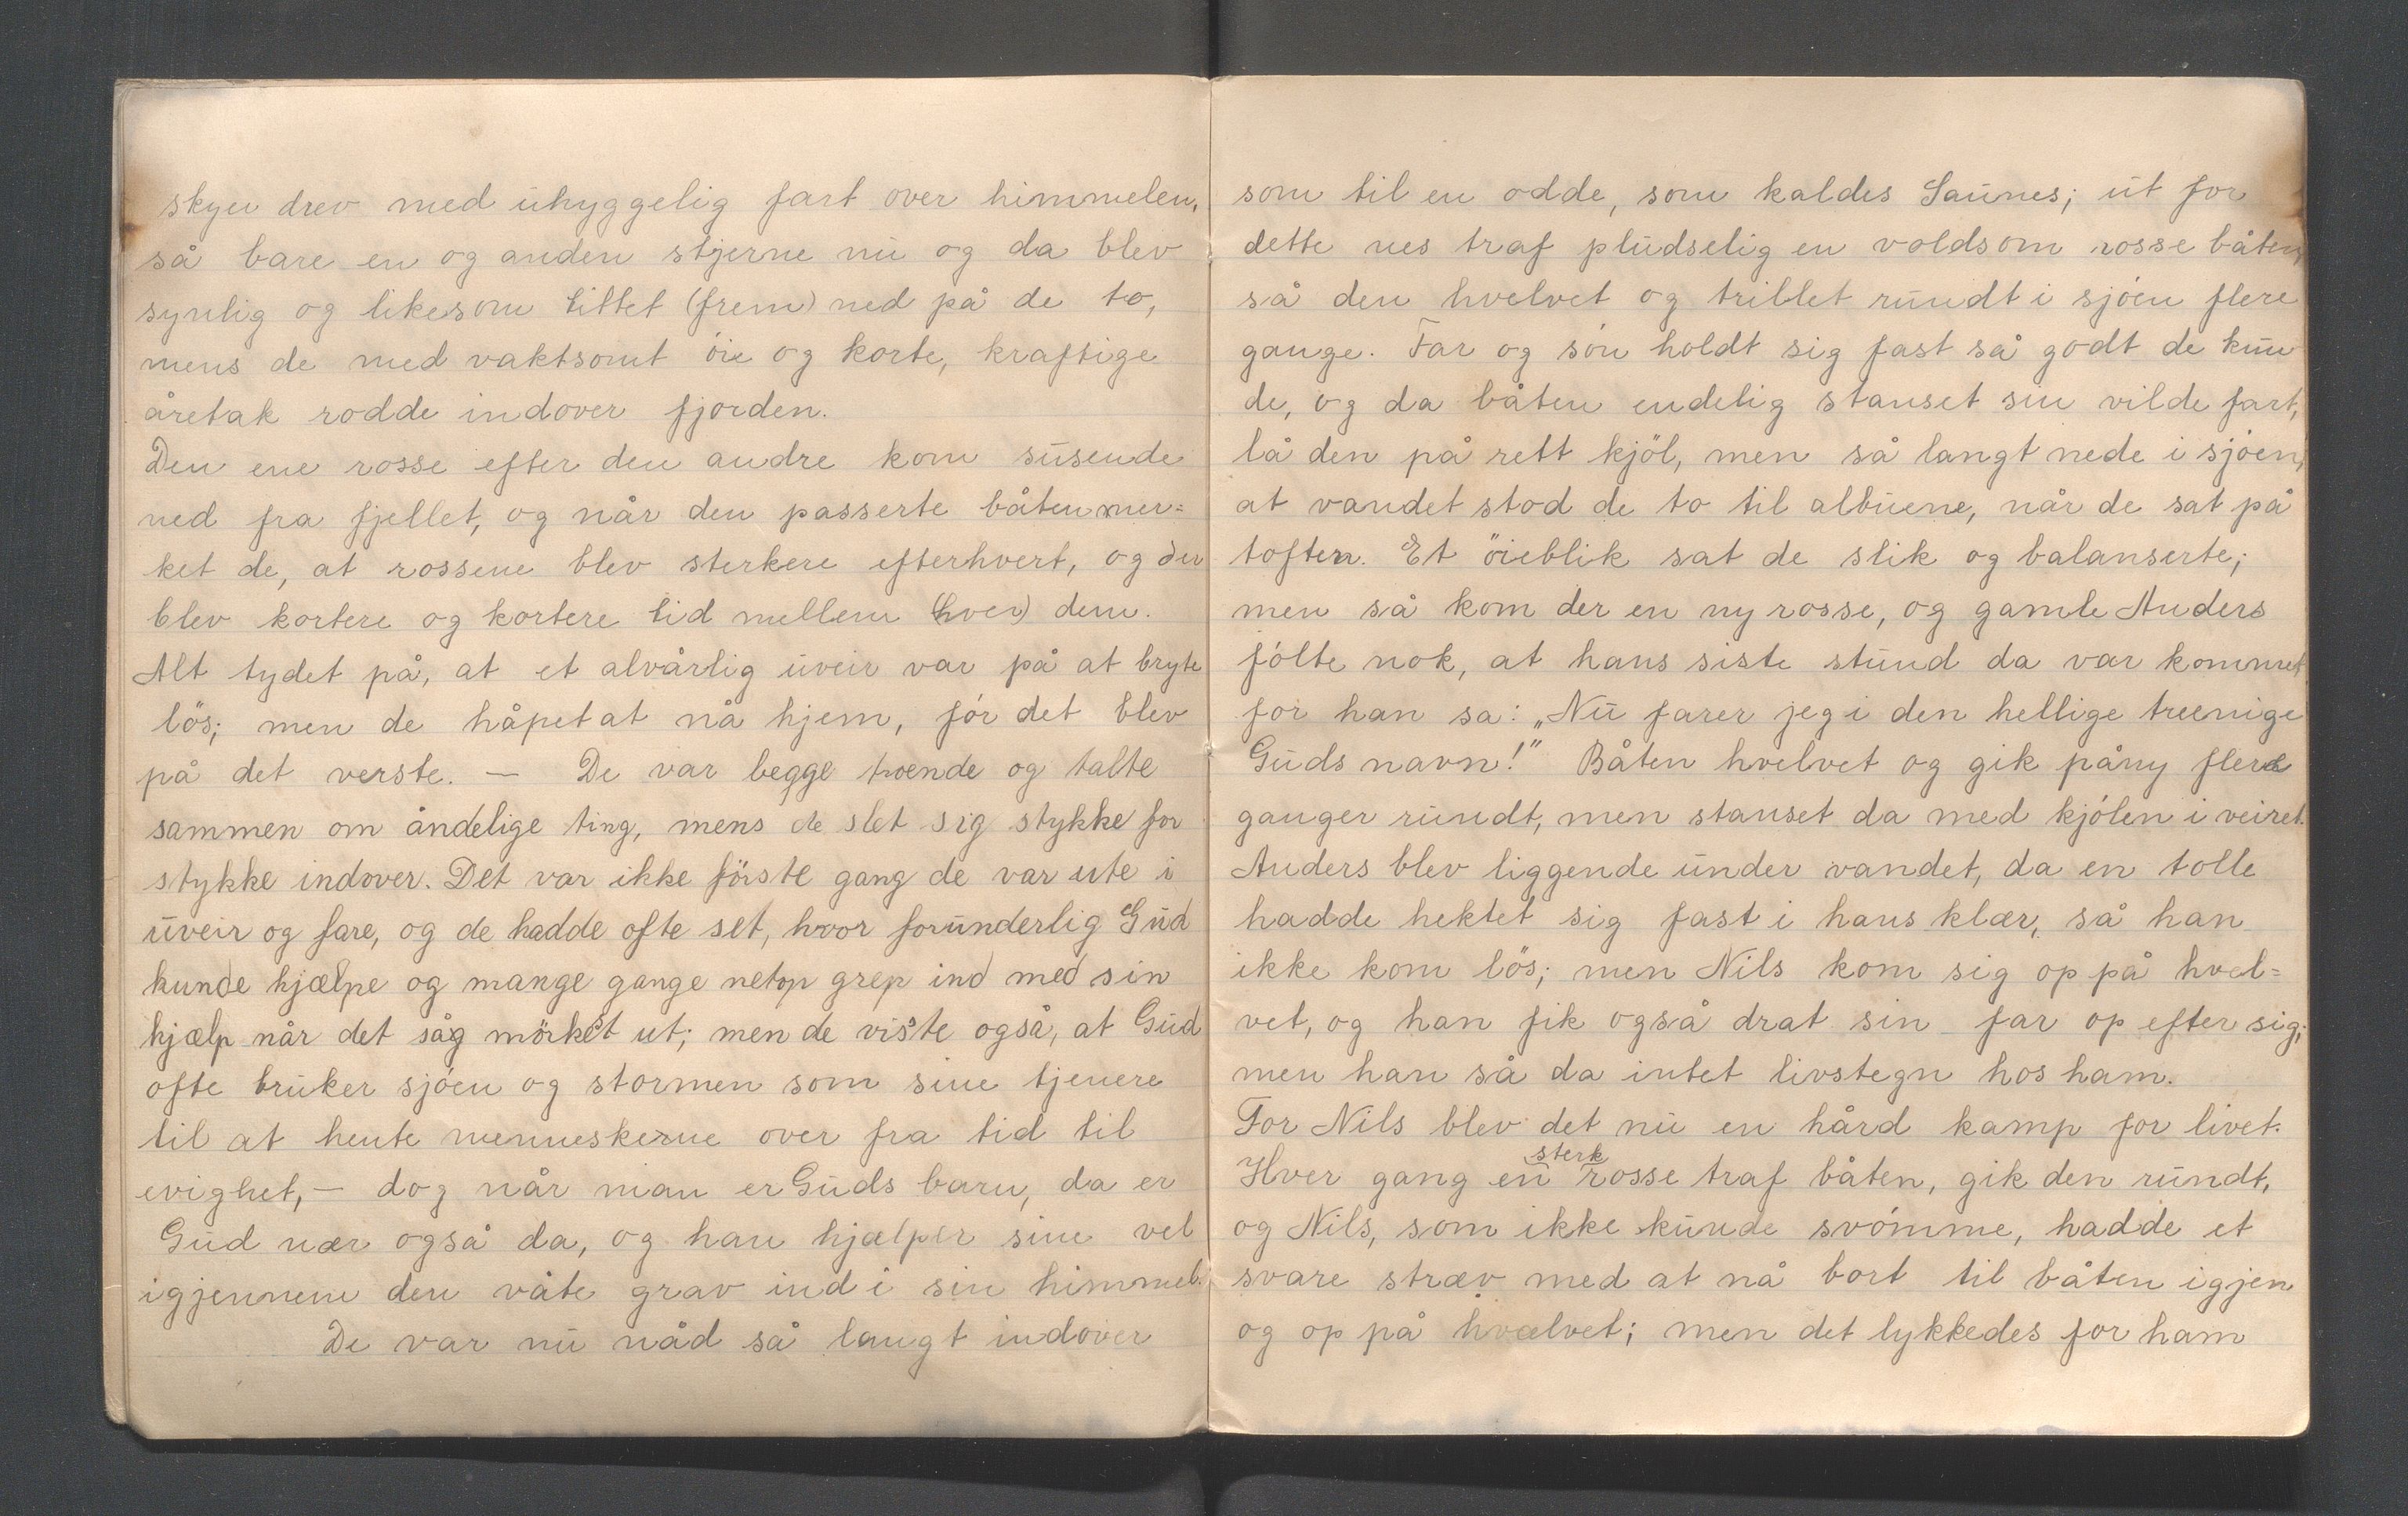 skyer drev med uhyggelig fart over himmelen,
så bare en og anden stjerne nu og da blev
synlig og likesom tittet (frem) ned på de to,
mens de med vaktsomt öie og korte, kraftige
åretak rodde indover fjorden.
Den ene rosse efter den andre kom susende
ned fra fjellet, og når den passerte båten mer=
ket de, at rossene blev sterkere efterhvert, og der
blev kortere og kortere tid mellem (hver) dem.
Alt tydet på, at et alvårlig uveir var på at bryte
lös; men de håpet at nå hjem, för det blev
på det verste. — De var begge troende og talte
sammen om åndelige ting, mens de slet sig stykke for
stykke indover. Det var ikke förste gang de var ute i
uveir og fare, og de hadde ofte set, hvor forunderlig Gud
kunde hjælpe og mange gange netop grep ind med sin
hjælp når det såg mörkest ut; men de visste også, at Gud
ofte bruker sjöen og stormen som sine tjenere
til at hente menneskerne over fra tid til
evighet, — dog når man er Guds barn, da er
Gud nær også da, og han hjælper sine vel
igjennem den våte grav ind i sin himmel.
De var nu nåd så langt indover
som til en odde, som kaldes Saunes; ut for
dette nes traf pludselig en voldsom rosse båten,
så den hvelvet og trillet rundt i sjöen flere
gange. Far og sön holdt sig fast så godt de kun
de, og da båten endelig stanset sin vilde fart,
lå den på rett kjöl, men så langt nede i sjöen,
at vandet stod de to til albuene, når de sat på
toften. Et öieblik sat de slik og balanserte;
men så kom der en ny rosse, og gamle Anders
fölte nok, at hans siste stund da var kommet
for han sa: „Nu farer jeg i den hellige treenige
Guds navn!" Båten hvelvet og gik påny flere
ganger rundt, men stanset da med kjölen i veiret.
Anders blev liggende under vandet, da en tolle
hadde hektet sig fast i hans klær, så han
ikke kom lös; men Nils kom sig op på hvel=
vet, og han fik også drat sin far op efter sig;
men han så da intet livstegn hos ham.
For Nils blev det nu en hård kamp for livet.
Hver gang en sterk rosse traf båten, gik den rundt,
og Nils, som ikke kunde svömme, hadde et
svare stræv med at nå bort til båten igjen
og op på hvælvet; men det lykkedes for ham